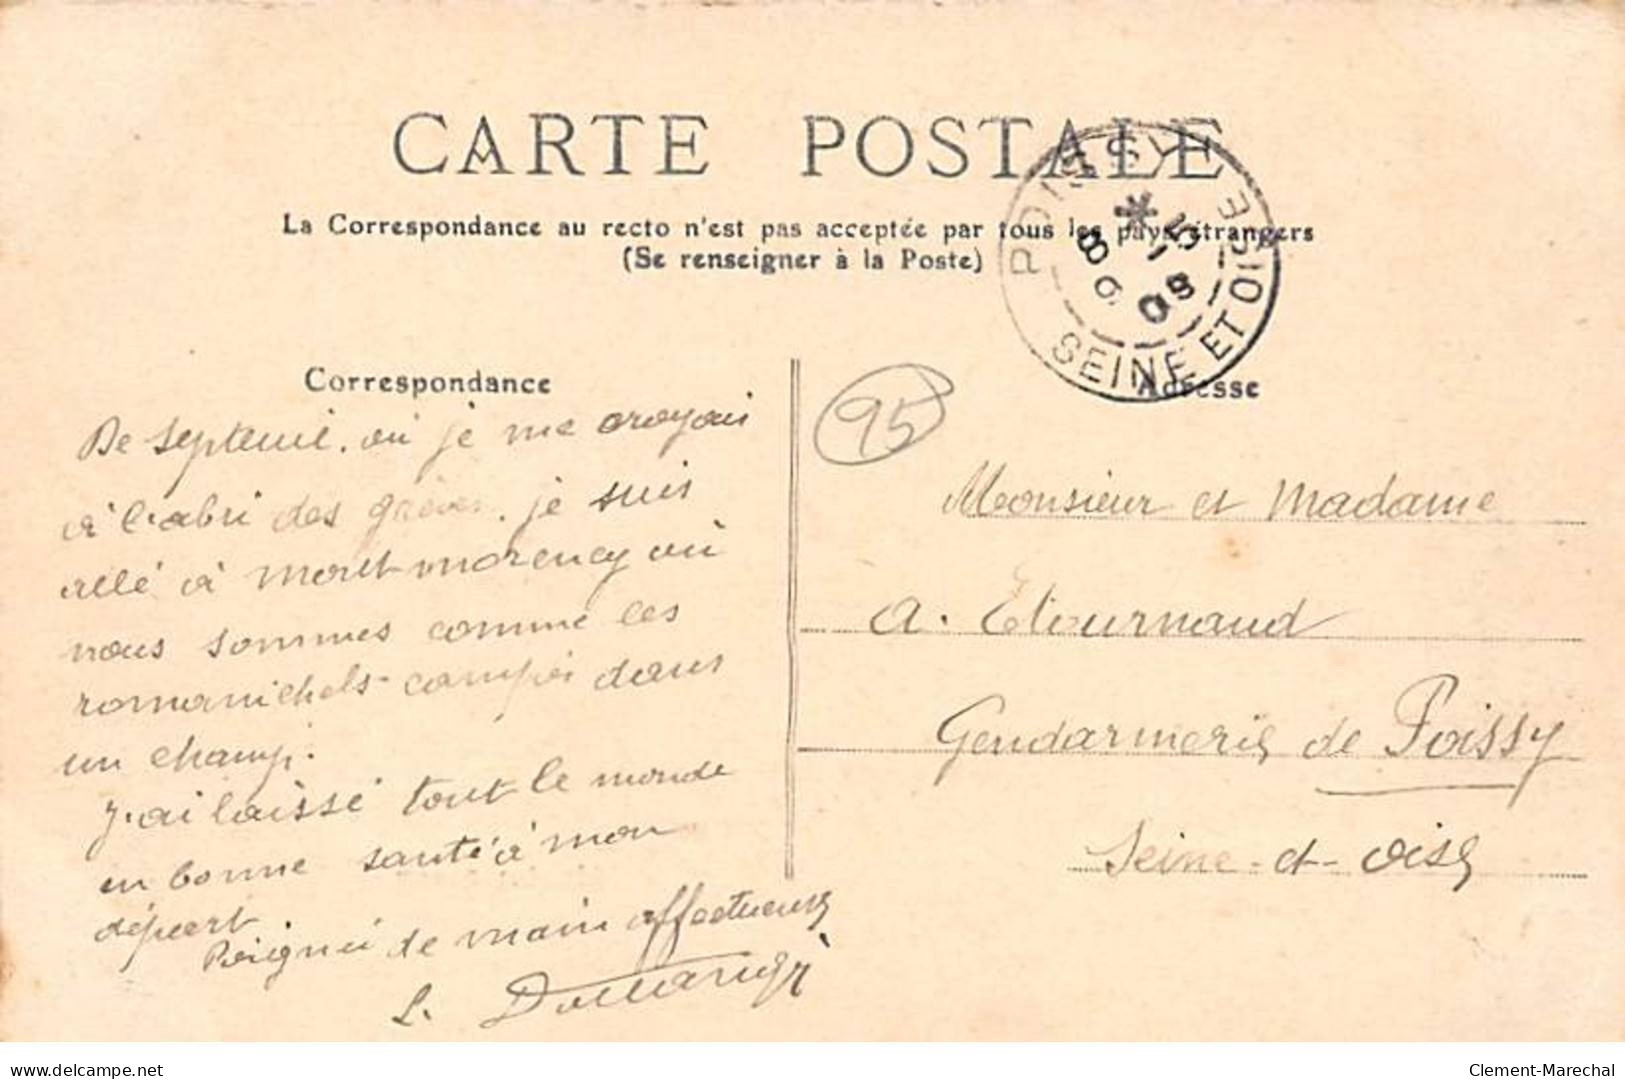 CARTE POSTALE
La Correspondance au recto n'est pas acceptée par tous les pays étrangers
(Se renseigner à la Poste)
POISSY
SEINE ET OISE
Correspondance
Adresse
95
De Septeuil, où je me croyais
à l'abri des grèves, je suis
allé à Montmorency où
nous sommes comme les
romanichels campés dans
un champ.
J'ai laissé tout le monde
en bonne santé à mon
départ.
Poignée de main affectueuse
L.
Monsieur et Madame
A. Etournaud
Gendarmerie de Poissy
Seine-et-Oise
delcampe.net
Clement-Marechal